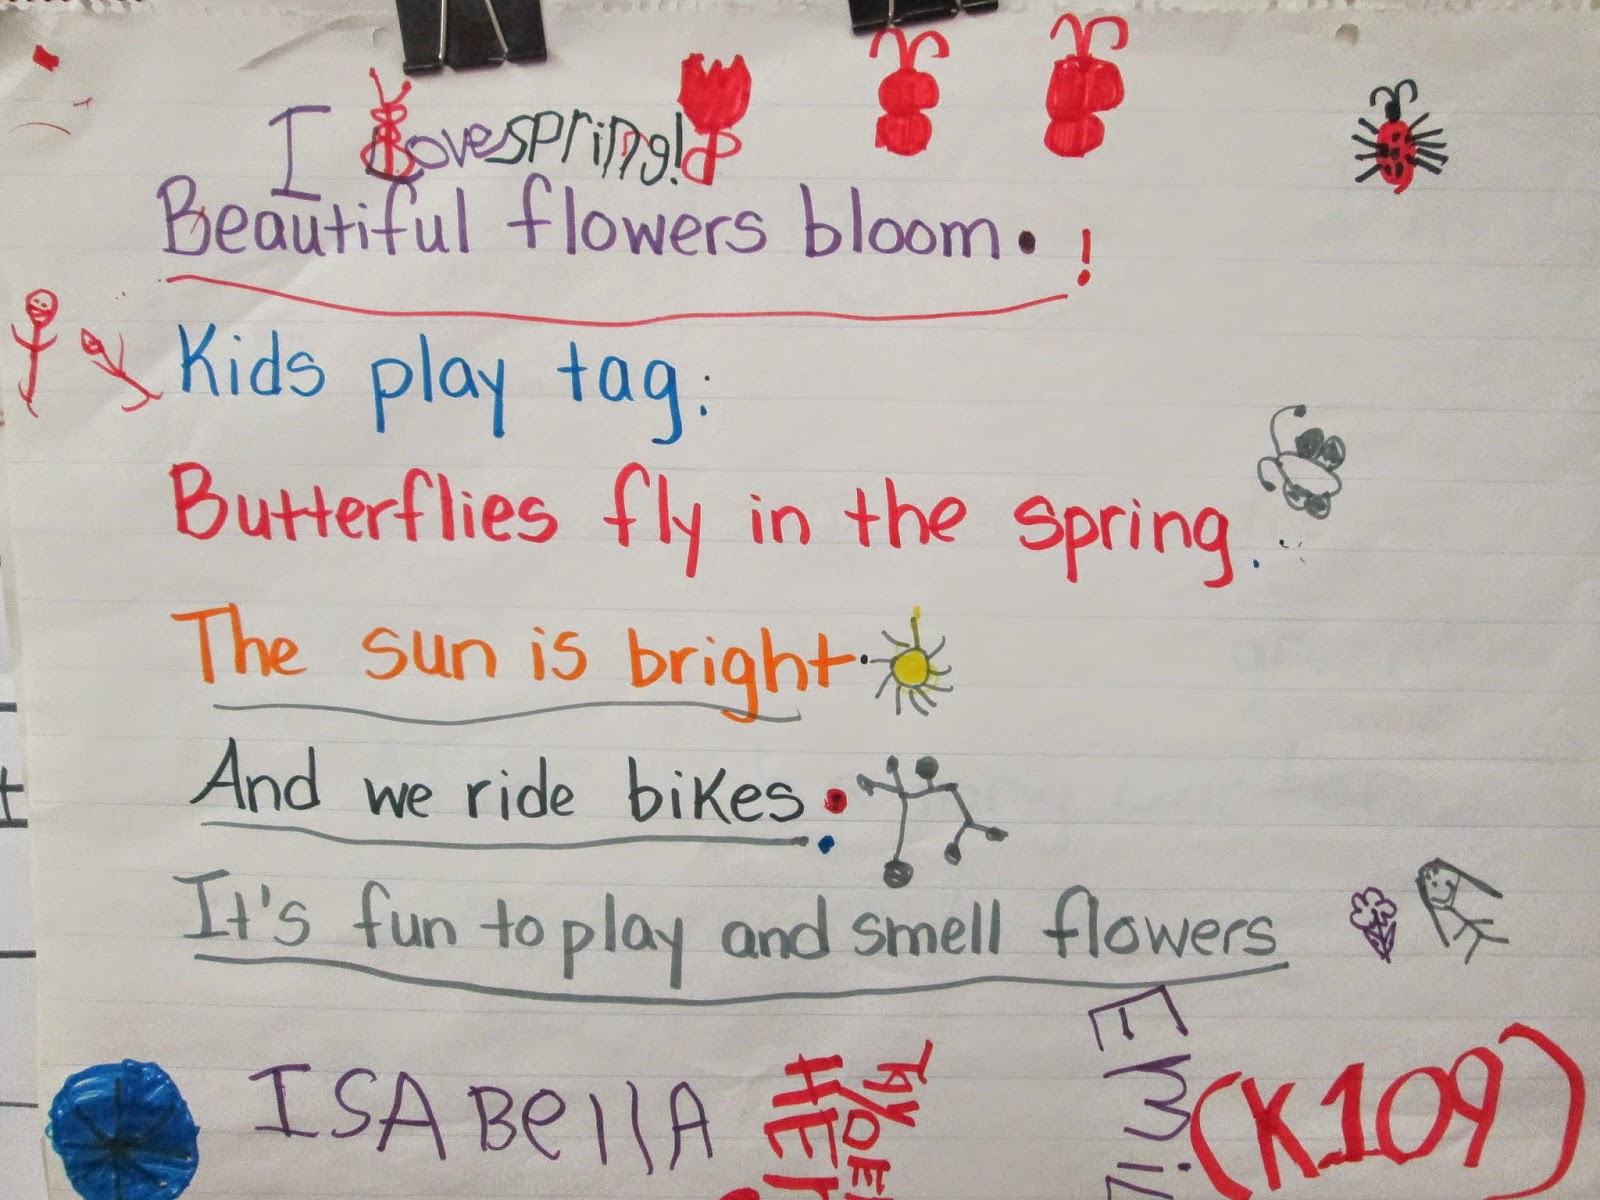 I Love spring!
Beautiful flowers bloom. !
Kids play tag.
Butterflies fly in the spring.
The sun is bright.
And we ride bikes.
It's fun to play and smell flowers
ISABellA
(K109)